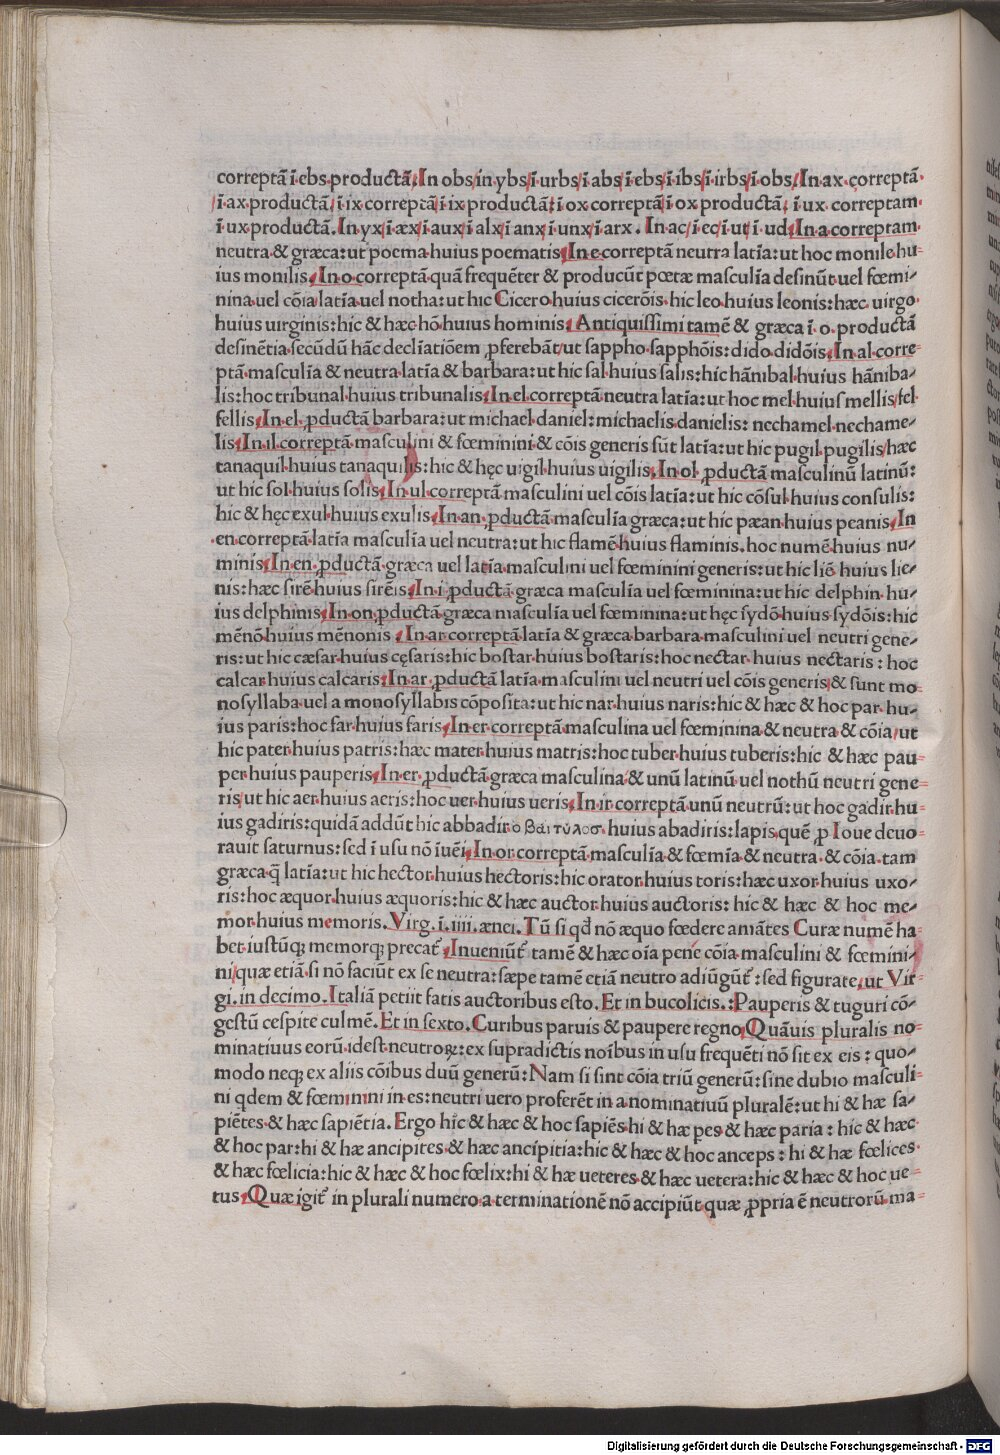 correptā ī·ebs·productā. In obs/in ybs/ī urbs/ī abs/ī ebs/ī ibs/ī irbs/ī obs. In ax·correptā·
ī·ax·productā/ī ix correptā·ī ix productā: ī ox correptā·ī ox productā: ī ux· correptam·
ī ux·productā. In yx/ī æx/ī aux/ī alx/ī anx/ī unx/ī arx. In ac/ī ec/ī ut/ī ud. In a·correptam·
neutra & græca: ut poema·huius poematis. In e·correptā neutra latīa: ut hoc monile·hu-
ius monilis. In o·correptā·quā frequēter & producūt poetæ masculīa desinūt·uel fœmi-
nina·uel cōia·latīa·uel notha: ut hic Cicero·huius cicerōis·hic leo·huius leonis: hæc uirgo·
huius uirginis: hic & hæc hō·huius hominis. Antiquissimi tamē & græca ī· o·productā
desinētia·secūdū hāc declīatiōem ꝓferebāt/ut sappho·sapphōis: dido·didōis. In al·corre-
ptā·masculīa & neutra·latīa & barbara: ut hic sal·huius salis: hic hānibal·huius hāniba/
lis: hoc tribunal·huius tribunalis. In el·correptā neutra latīa: ut hoc mel·huius mellis/fel·
fellis. In el·ꝓductā barbara: ut michael·daniel: michaelis·danielis: nechamel·nechame-
lis. In il·correptā·masculini & fœminini·& cōis generis sūt latīa: ut hic pugil·pugilis/hæc
tanaquil·huius tanaquilis: hic & hęc uigil·huius uigilis. In ol·ꝓductā masculinū latinū:
ut hic sol·huius solis. In ul·correptā masculini uel cōis latīa: ut hic cōsul·huius consulis:
hic & hęc exul·huius exulis. In an·ꝓductā masculīa græca: ut hic pæan·huius peanis. In
·en·correptā·latīa masculīa uel neutra: ut hic flamē·huius flaminis·hoc numē·huius nu/
minis. In en·ꝓductā·græca uel latīa·masculini uel fœminini generis: ut hic liē·huius lie/
nis: hæc sirē·huius sirēis. In ī·ꝓductā·græca masculīa uel fœminina: ut hic delphin·hu/
ius delphinis. In on·ꝓductā·græca masculīa uel fœminina: ut hęc sydō·huius sydōis: hic
mēnō·huius mēnonis. In ar·correptā·latīa & græca·barbara·masculini uel neutri gene/
ris: ut hic cæsar·huius cęsaris: hic bostar·huius bostaris: hoc nectar·huius nectaris: hoc
calcar·huius calcaris. In ar·ꝓductā latīa·masculini uel neutri uel cōis generis/& sunt mo-
nosyllaba·uel a monosyllabis cōposita: ut hic nar·huius naris: hic & hæc & hoc par·hu-
ius paris: hoc far·huius faris. In er·correptā·masculina uel fœminina·& neutra & cōia/ut
hic pater·huius patris: hæc mater·huius matris: hoc tuber·huius tuberis: hic & hæc pau-
per·huius pauperis. In er·ꝓductā·græca masculina·& unū latinū·uel nothū neutri gene-
ris/ut hic aer·huius aeris: hoc uer·huius ueris. In ir·correptā·unū neutrū: ut hoc gadir·hu-
ius gadiris: quidā addūt hic abbadir·ο βαιτυλοσ·huius abadiris: lapis·quē ꝓ Ioue deuo-
rauit saturnus: sed ī usu nō īuēī. In or·correptā·masculīa & fœmīa & neutra·& cōia·tam
græca q̄ latīa: ut hic hector·huius hectoris: hic orator·huius toris: hæc uxor·huius uxo/
ris: hoc æquor·huius æquoris: hic & hæc auctor·huius auctoris: hic & hæc & hoc me-
mor·huius memoris. Virg. ī. iiii. ænei. Tū si qd nō æquo fœdere amātes Curæ numē ha-
bet·iustūq; memorq; precat᷑. Inueniūt᷑ tamē & hæc oīa pene cōia·masculini & fœmini-
ni/quæ etiā·si nō faciūt ex se neutra: sæpe tamē etiā neutro adiūgūt᷑: sed figurate/ut Vir-
gi. in decimo. Italiā petiit fatis auctoribus esto. Et in bucolicis.: Pauperis & tuguri cō-
gestū cespite culmē. Et in sexto. Curibus paruis & paupere regno. Quāuis pluralis no-
minatiuus eorū·idest neutroꝝ: ex supradictis noībus in usu frequēti nō sit ex eis: quo/
modo neq; ex aliis cōibus duū generū: Nam si sint cōia triū generū: sine dubio masculi-
ni qdem & fœminini in es: neutri uero proferēt in a·nominatiuū pluralē: ut hi & hæ sa-
piētes & hæc sapiētia. Ergo hic & hæc & hoc sapiēs·hi & hæ pes & hæc paria: hic & hæc
& hoc par: hi & hæ ancipites·& hæc ancipitia: hic & hæc & hoc anceps: hi & hæ fœlices·
& hæc fœlicia: hic & hæc & hoc fœlix: hi & hæ ueteres & hæc uetera: hic & hæc & hoc ue-
tus. Quæ igit᷑ in plurali numero·a·terminationē nō accipiūt quæ ꝓpria ē neutrorū·ma-
Digitalisierung gefördert durch die Deutsche Forschungsgemeinschaft - DFG